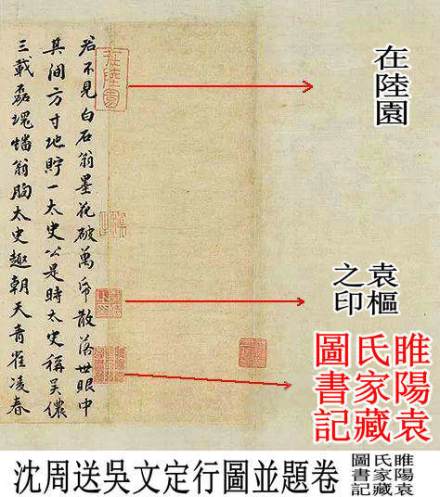 君不見白石翁墨花破萬帋散落世眼中
其間方寸地貯一太史公是時太史稱吳儂
三載磊塊惱翁胸太史趣朝天青雀凌春
在陸園
在陸園
袁樞
之印
睢陽袁
氏家藏
圖書記
沈周送吳文定行圖並題卷
睢陽袁
氏家藏
圖書記